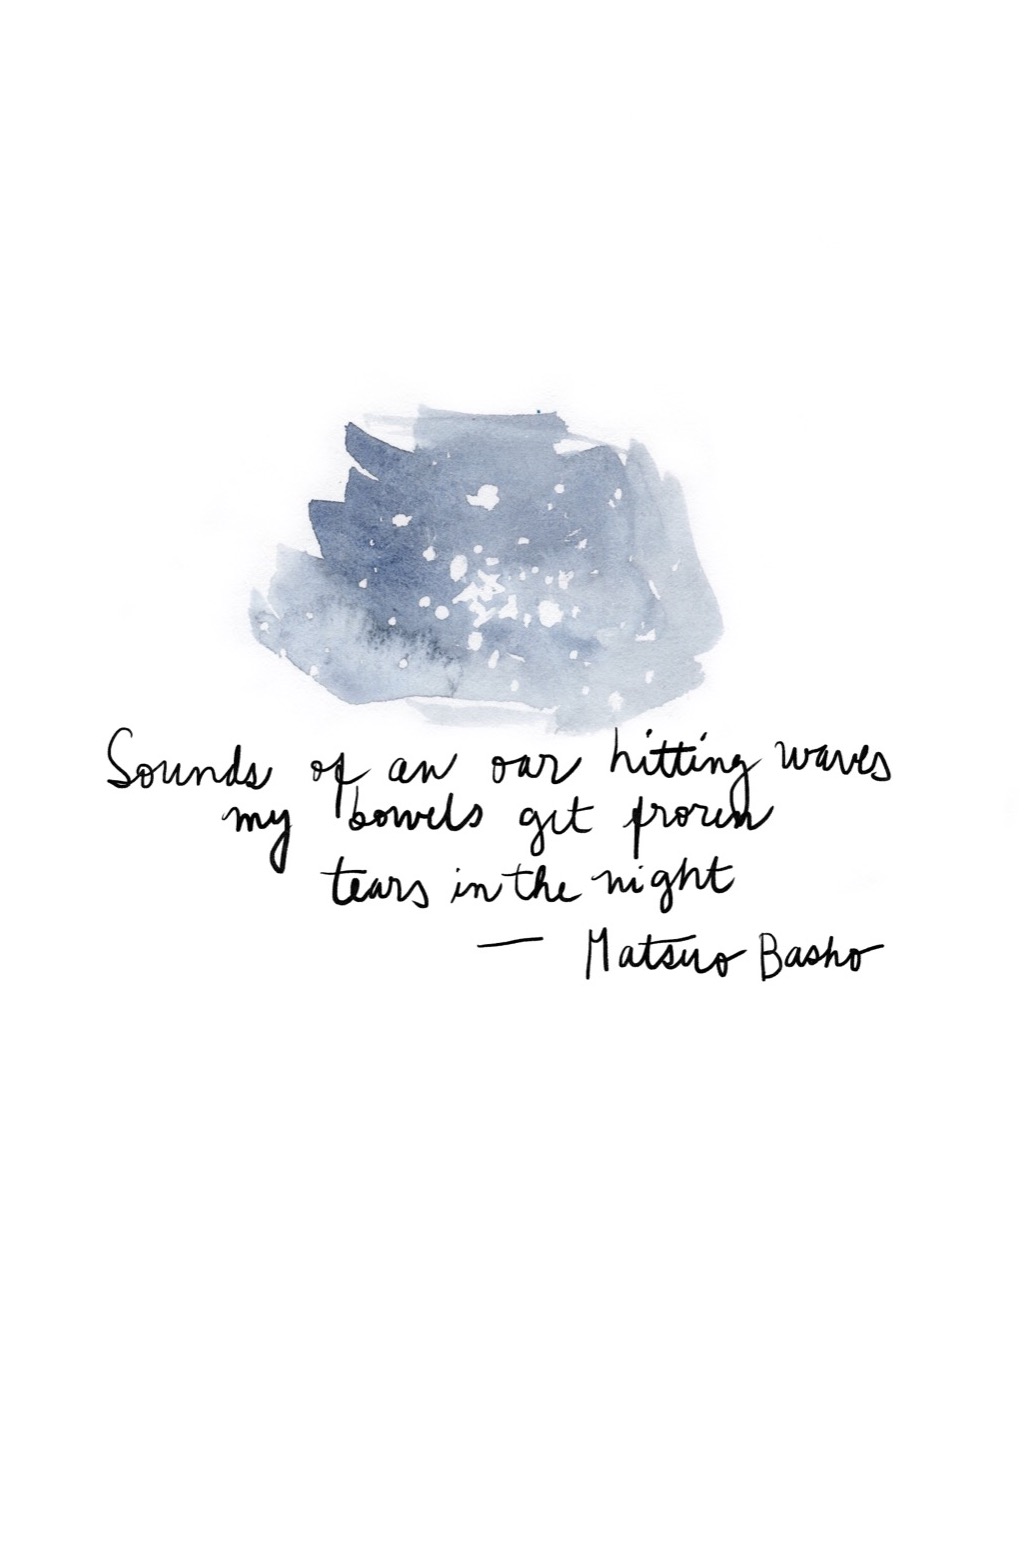 Sounds of an oar hitting waves
my bowels get frozen
tears in the night
— Matsuo Basho